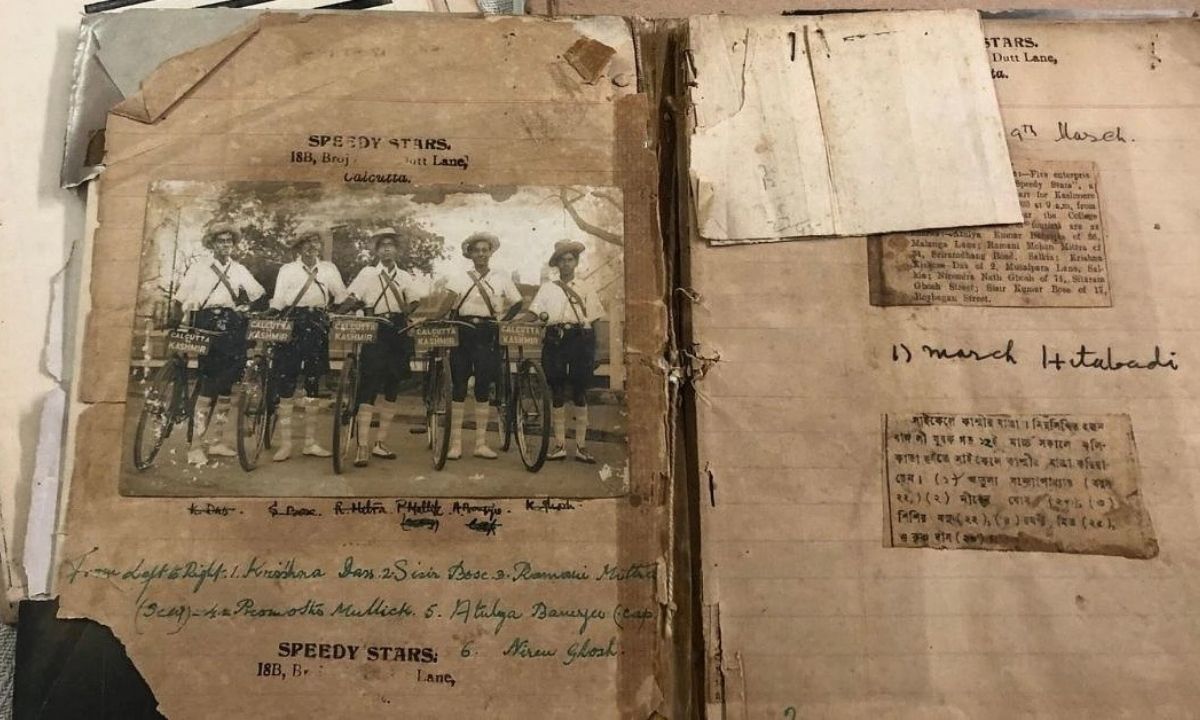 SPEEDY STARS.
18B, Broj Dutt Lane,
Calcutta.
CALCUTTA
KASHMIR
CALCUTTA
KASHMIR
CALCUTTA
KASHMIR
CALCUTTA
KASHMIR
CALCUTTA
KASHMIR
K. Das. S. Bose. R. Mitra P. Mullick K. Ghosh.
From Left to Right: 1. Krishna Dass. 2. Sisir Bose. 3. Ramani Mitra
(Secy) 4. Promotho Mullick. 5. Atulya Banerjee (cap
6. Niren Ghosh.
SPEEDY STARS.
18B, Lane,
STARS.
Dutt Lane,
ta.
9th March.
Five enterpris
"Speedy Stars", a
art for Kashmere
at 9 a.m. from
ar the College
are as
Atulya Kumar of
Malanga Lane; Ramani Mohan Mittra of
Road, Salkia; Krishna
Das of 2, Lane, Sal-
kia; Nirendra Nath Ghosh of 14, Sitaram
Ghosh Street; Sisir Kumar Bose of 17,
Bagan Street.
13 march Hitabadi
সাইকেলে কাশ্মীর যাত্রা। নিম্নলিখিত
বাঙ্গালী যুবক গত ১২ই মার্চ্চ সকালে কলি-
কাতা হইতে সাইকেলে কাশ্মীর যাত্রা করিয়া
ছেন। (১) অতুল্য বন্দ্যোপাধ্যায় (বয়স
২২,) (২) ঘোষ (৩)
শিশির বসু (২২), (৪) মিত্র (২৫),
ও কৃষ্ণ দাস